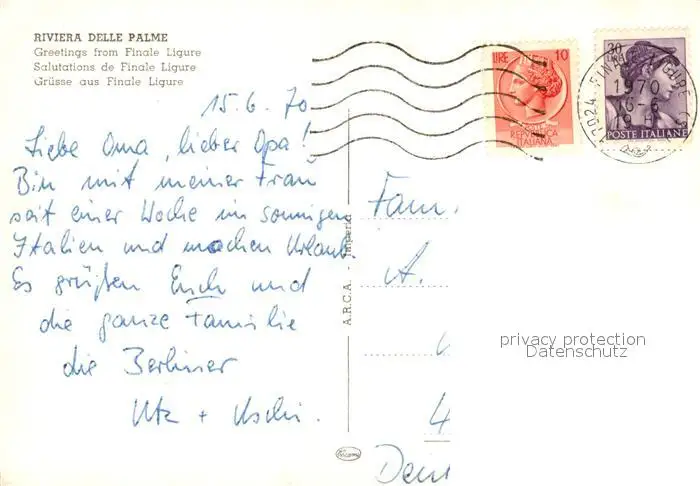 RIVIERA DELLE PALME
Greetings from Finale Ligure
Salutations de Finale Ligure
Grüsse aus Finale Ligure
15.6.70
Liebe Oma, lieber Opa!
Bin mit meiner Frau
seit einer Woche im sonnigen
Italien und machen Urlaub.
Es grüßen Euch und
die ganze Familie
die Berliner
Utz + Uschi.
A.R.C.A. - Imperia
LIRE 10
REPVBBLICA
ITALIANA
30
LIRE
POSTE ITALIANE
17024 FINALE LIGURE
1970
16-6
19 H
Fam.
A.
4
privacy protection
Datenschutz